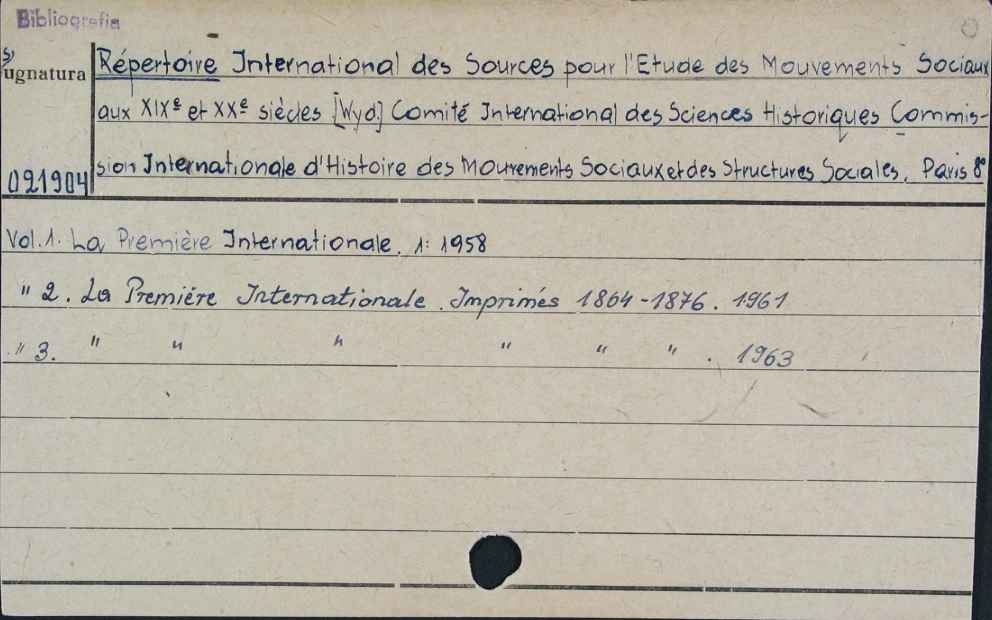 Bibliografia
Sygnatura
Répertoire International des Sources pour l'Etude des Mouvements Sociaux
aux XIXe et XXe siècles [Wyd.] Comité International des Sciences Historiques Commis-
sion Internationale d'Histoire des Mouvements Sociaux et des Structures Sociales. Paris 8°
021904
Vol. 1. La Première Internationale. 1: 1958
" 2. La Première Internationale. Imprimés 1864-1876. 1961
" 3. " " " " " " . 1963